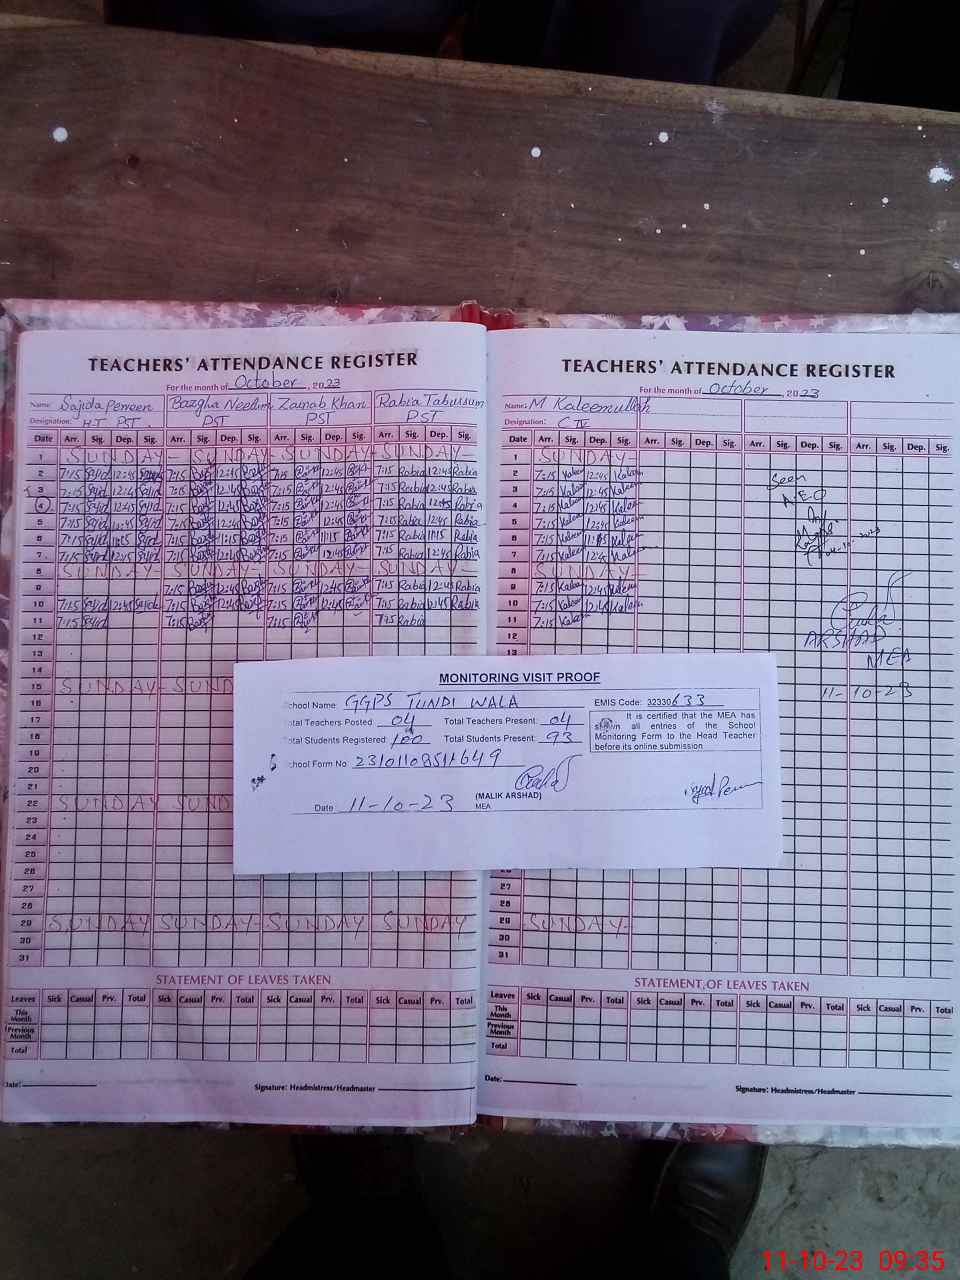 TEACHERS' ATTENDANCE REGISTER
For the month of October, 2023
Name: Sajida Perveen Bazgha Neelum Zainab Khan Rabia Tabussum
Designation: H.T PST. PST PST PST
Date Arr. Sig. Dep. Sig. Arr. Sig. Dep. Sig. Arr. Sig. Dep. Sig. Arr. Sig. Dep. Sig.
1 SUNDAY - SUNDAY - SUNDAY - SUNDAY -
2 7:15 12:45 7:15 12:45 7:15 12:45 7:15 Rabia 12:45 Rabia
3 7:15 12:45 7:15 12:45 7:15 12:45 7:15 Rabia 12:45 Rabia
4 7:15 12:45 7:15 12:45 7:15 12:45 7:15 Rabia 12:45 Rabia
5 7:15 12:45 7:15 12:45 7:15 12:45 7:15 Rabia 12:45 Rabia
6 7:15 11:15 7:15 11:15 7:15 11:15 7:15 Rabia 11:15 Rabia
7 7:15 12:45 7:15 12:45 7:15 12:45 7:15 Rabia 12:45 Rabia
8 SUNDAY SUNDAY SUNDAY SUNDAY
9 7:15 12:45 7:15 12:45 7:15 Rabia 12:45 Rabia
10 7:15 12:45 7:15 12:45 7:15 12:45 7:15 Rabia 12:45 Rabia
11 7:15 7:15 7:15 7:15 Rabia
12
13
14
15 SUNDAY - SUND
16
17
18
19
20
21
22 SUNDAY SUND
23
24
25
26
27
28
29 SUNDAY SUNDAY - SUNDAY SUNDAY
30
31
STATEMENT OF LEAVES TAKEN
Leaves Sick Casual Prv. Total Sick Casual Prv. Total Sick Casual Prv. Total Sick Casual Prv. Total
This Month
Previous Month
Total
Date:
Signature: Headmistress/Headmaster
TEACHERS' ATTENDANCE REGISTER
For the month of October, 2023
Name: M Kaleemullah
Designation: C IV
Date Arr. Sig. Dep. Sig. Arr. Sig. Dep. Sig. Arr. Sig. Dep. Sig. Arr. Sig. Dep. Sig.
1 SUNDAY -
2 7:15 Kaleem 12:45 Kaleem
3 7:15 Kaleem 12:45 Kaleem
4 7:15 Kaleem 12:45 Kaleem
5 7:15 Kaleem 12:45 Kaleem
6 7:15 Kaleem Kaleem
7 7:15 Kaleem 12:45 Kaleem
8 SUNDAY
9 7:15 Kaleem 12:45 Kaleem
10 7:15 Kaleem 12:45 Kaleem
11 7:15 Kaleem
12
13
Seen
A.E.O
ARSHAD
MEA
11-10-23
27
28
29 SUNDAY -
30
31
STATEMENT OF LEAVES TAKEN
Leaves Sick Casual Prv. Total Sick Casual Prv. Total Sick Casual Prv. Total Sick Casual Prv. Total
This Month
Previous Month
Total
Date:
Signature: Headmistress/Headmaster
MONITORING VISIT PROOF
School Name: GGPS TUNDI WALA
EMIS Code: 32330633
Total Teachers Posted: 04 Total Teachers Present: 04
Total Students Registered: 100 Total Students Present: 93
It is certified that the MEA has shown all entries of the School Monitoring Form to the Head Teacher before its online submission
School Form No
(MALIK ARSHAD)
MEA
Date 11-10-23
11-10-23 09:35